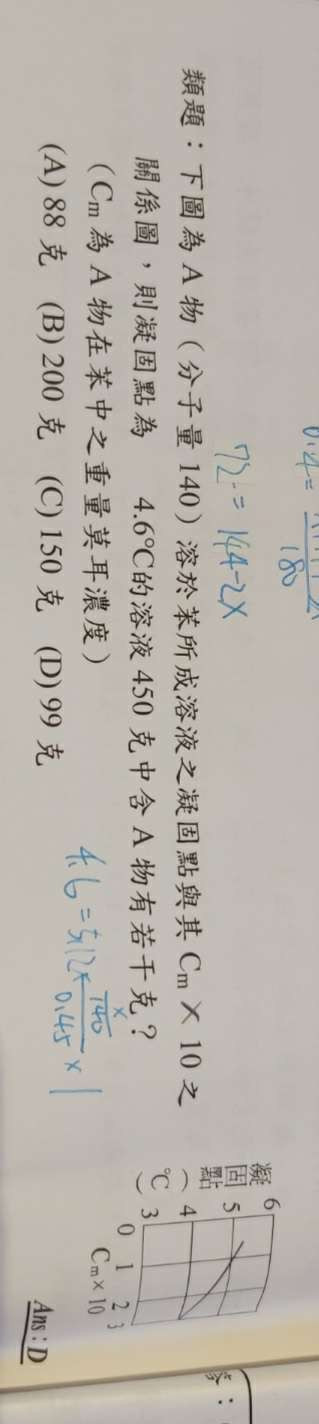 72 = 144-2x
180
類題：下圖為 A 物（分子量 140）溶於苯所成溶液之凝固點與其 Cₘ × 10 之
關係圖，則凝固點為 4.6℃的溶液 450 克中含 A 物有若干克？
（Cₘ 為 A 物在苯中之重量莫耳濃度）
(A) 88 克 (B) 200 克 (C) 150 克 (D) 99 克
凝固點（℃）
6
5
4
3
0 1 2 3
Cₘ × 10
Ans : D